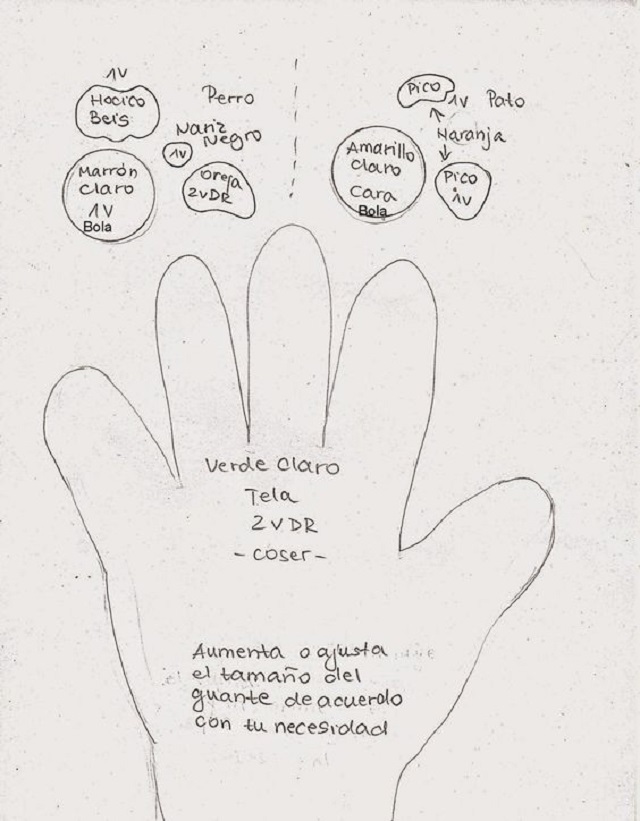 1V
Hocico
Beis
Perro
Nariz
Negro
1V
Marrón
Claro
1V
Bola
Oreja
2VDR
Pico
1V
Pato
Naranja
Amarillo
Claro
Cara
Bola
Pico
1V
Verde Claro
Tela
2VDR
-coser-
Aumenta o ajusta
el tamaño del
guante de acuerdo
con tu necesidad